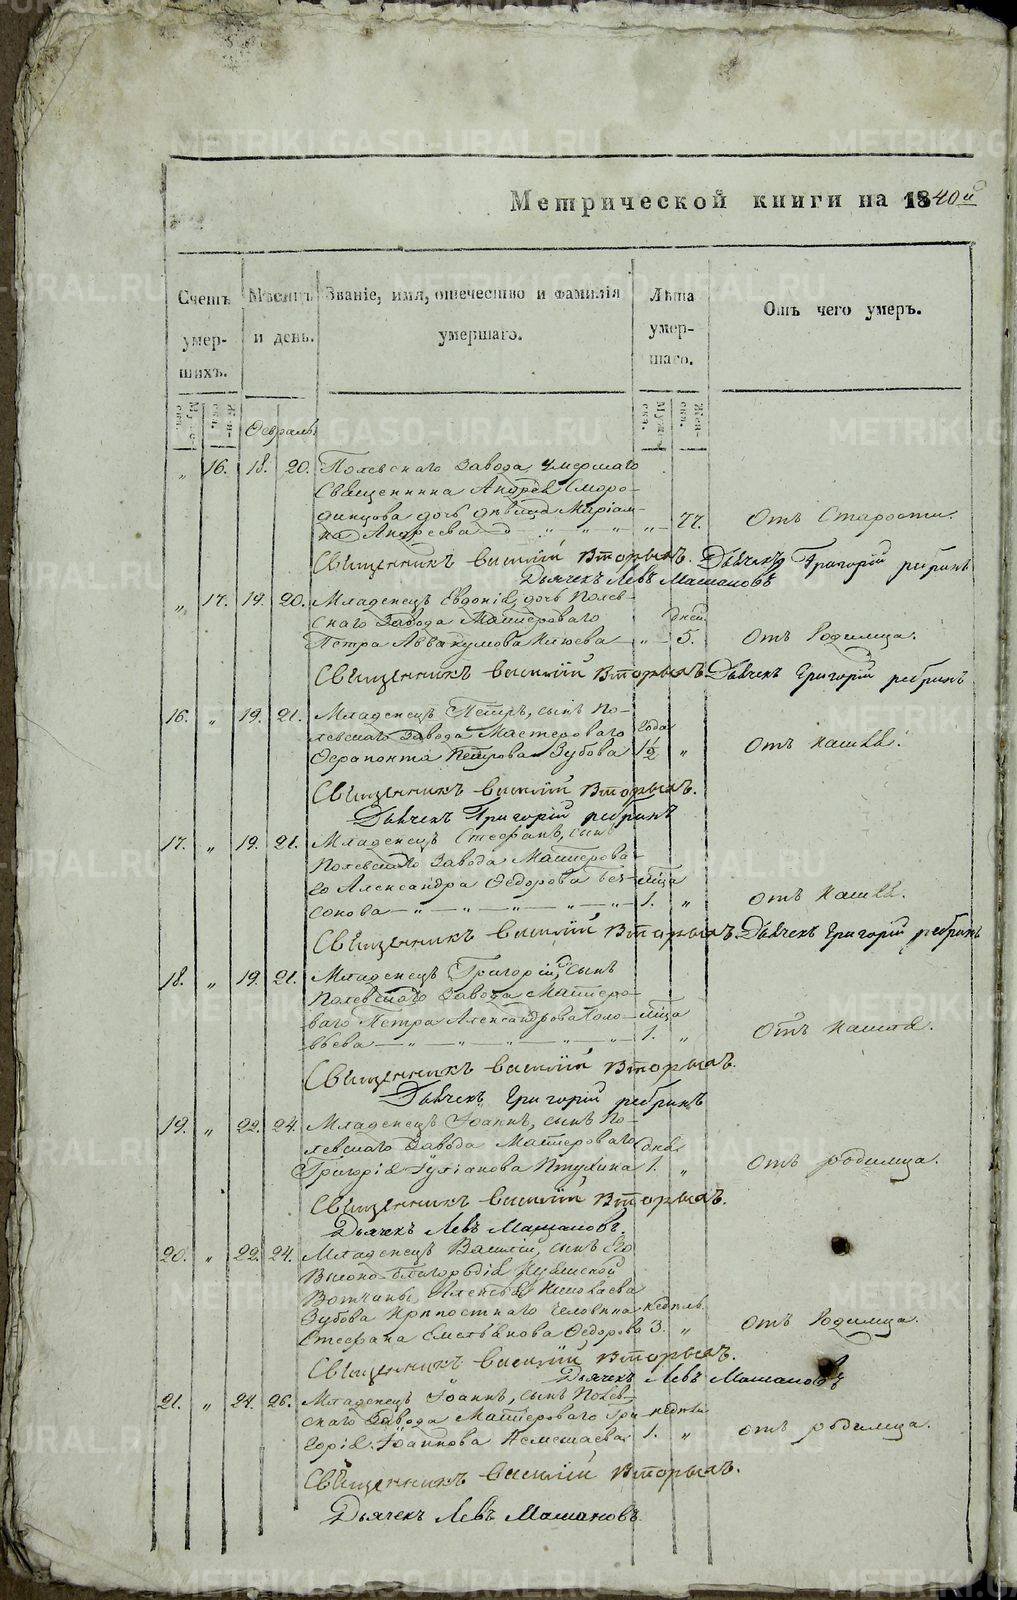 Метрической книги на 1840й
Счетъ умер- шихъ.
Мѣсяцъ и день.
Званіе, имя, отечество и фамилія умершаго.
Лѣта умер- шаго.
Отъ чего умеръ.
Февраль
„ 16. 18. 20. Полевскаго Завода, умершаго
Священника Андрея Сморо-
динцова дочь дѣвица Маріам-
на Андреева — „ „ „ — „ — 77. Отъ Старости.
Священникъ Василій Вторыхъ. Дьячекъ Григорій Ребринъ
Дьячекъ Левъ Машановъ
„ 17. 19. 20. Младенецъ Евдокія, дочь Полев-
скаго Завода Мастероваго дней
Петра Аввакумова Клюева — „ — 5. Отъ Родимца.
Священникъ Василій Вторыхъ. Дьячекъ Григорій Ребринъ
16. „ 19. 21. Младенецъ Петръ, сынъ По-
левскаго Завода Мастероваго года
Ферапонта Петрова Зубова 1½ „ Отъ кашля.
Священникъ Василій Вторыхъ.
Дьячекъ Григорій Ребринъ
17. „ 19. 21. Младенецъ Стефанъ, сынъ
Полевскаго Завода Мастерова-
го Александра Федорова Без- мѣца
сонова — „ — „ — „ — „ — „ — 1. „ Отъ кашля.
Священникъ Василій Вторыхъ. Дьячекъ Григорій Ребринъ
18. „ 19. 21. Младенецъ Григорій, сынъ
Полевскаго Завода Мастеро-
ваго Петра Александрова Соло- мѣца
вьева — „ — „ — „ — „ — „ — 1. „ Отъ кашля.
Священникъ Василій Вторыхъ.
Дьячекъ Григорій Ребринъ
19. „ 22. 24. Младенецъ Іоаннъ, сынъ По-
левскаго Завода Мастероваго дня
Григорія Іуліанова Птухина 1. „ Отъ родимца.
Священникъ Василій Вторыхъ.
Дьячекъ Левъ Машановъ.
20. „ 22. 24. Младенецъ Василій, сынъ Его
Высоко-Благородія
Вотчины Алексѣя Николаева
Зубова Крѣпостнаго человѣка недѣль
Стефана Емельянова Федорова 3. „ Отъ Родимца.
Священникъ Василій Вторыхъ.
Дьячекъ Левъ Машановъ
21. „ 24. 26. Младенецъ Іоаннъ, сынъ Полев-
скаго Завода Мастероваго Гри- недѣли
горія Іоаннова 1. „ отъ родимца.
Священникъ Василій Вторыхъ.
Дьячекъ Левъ Машановъ